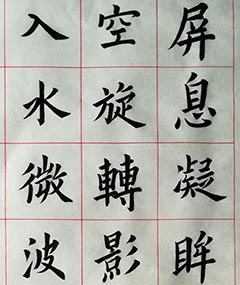 屏息凝眸
空旋轉影
入水微波